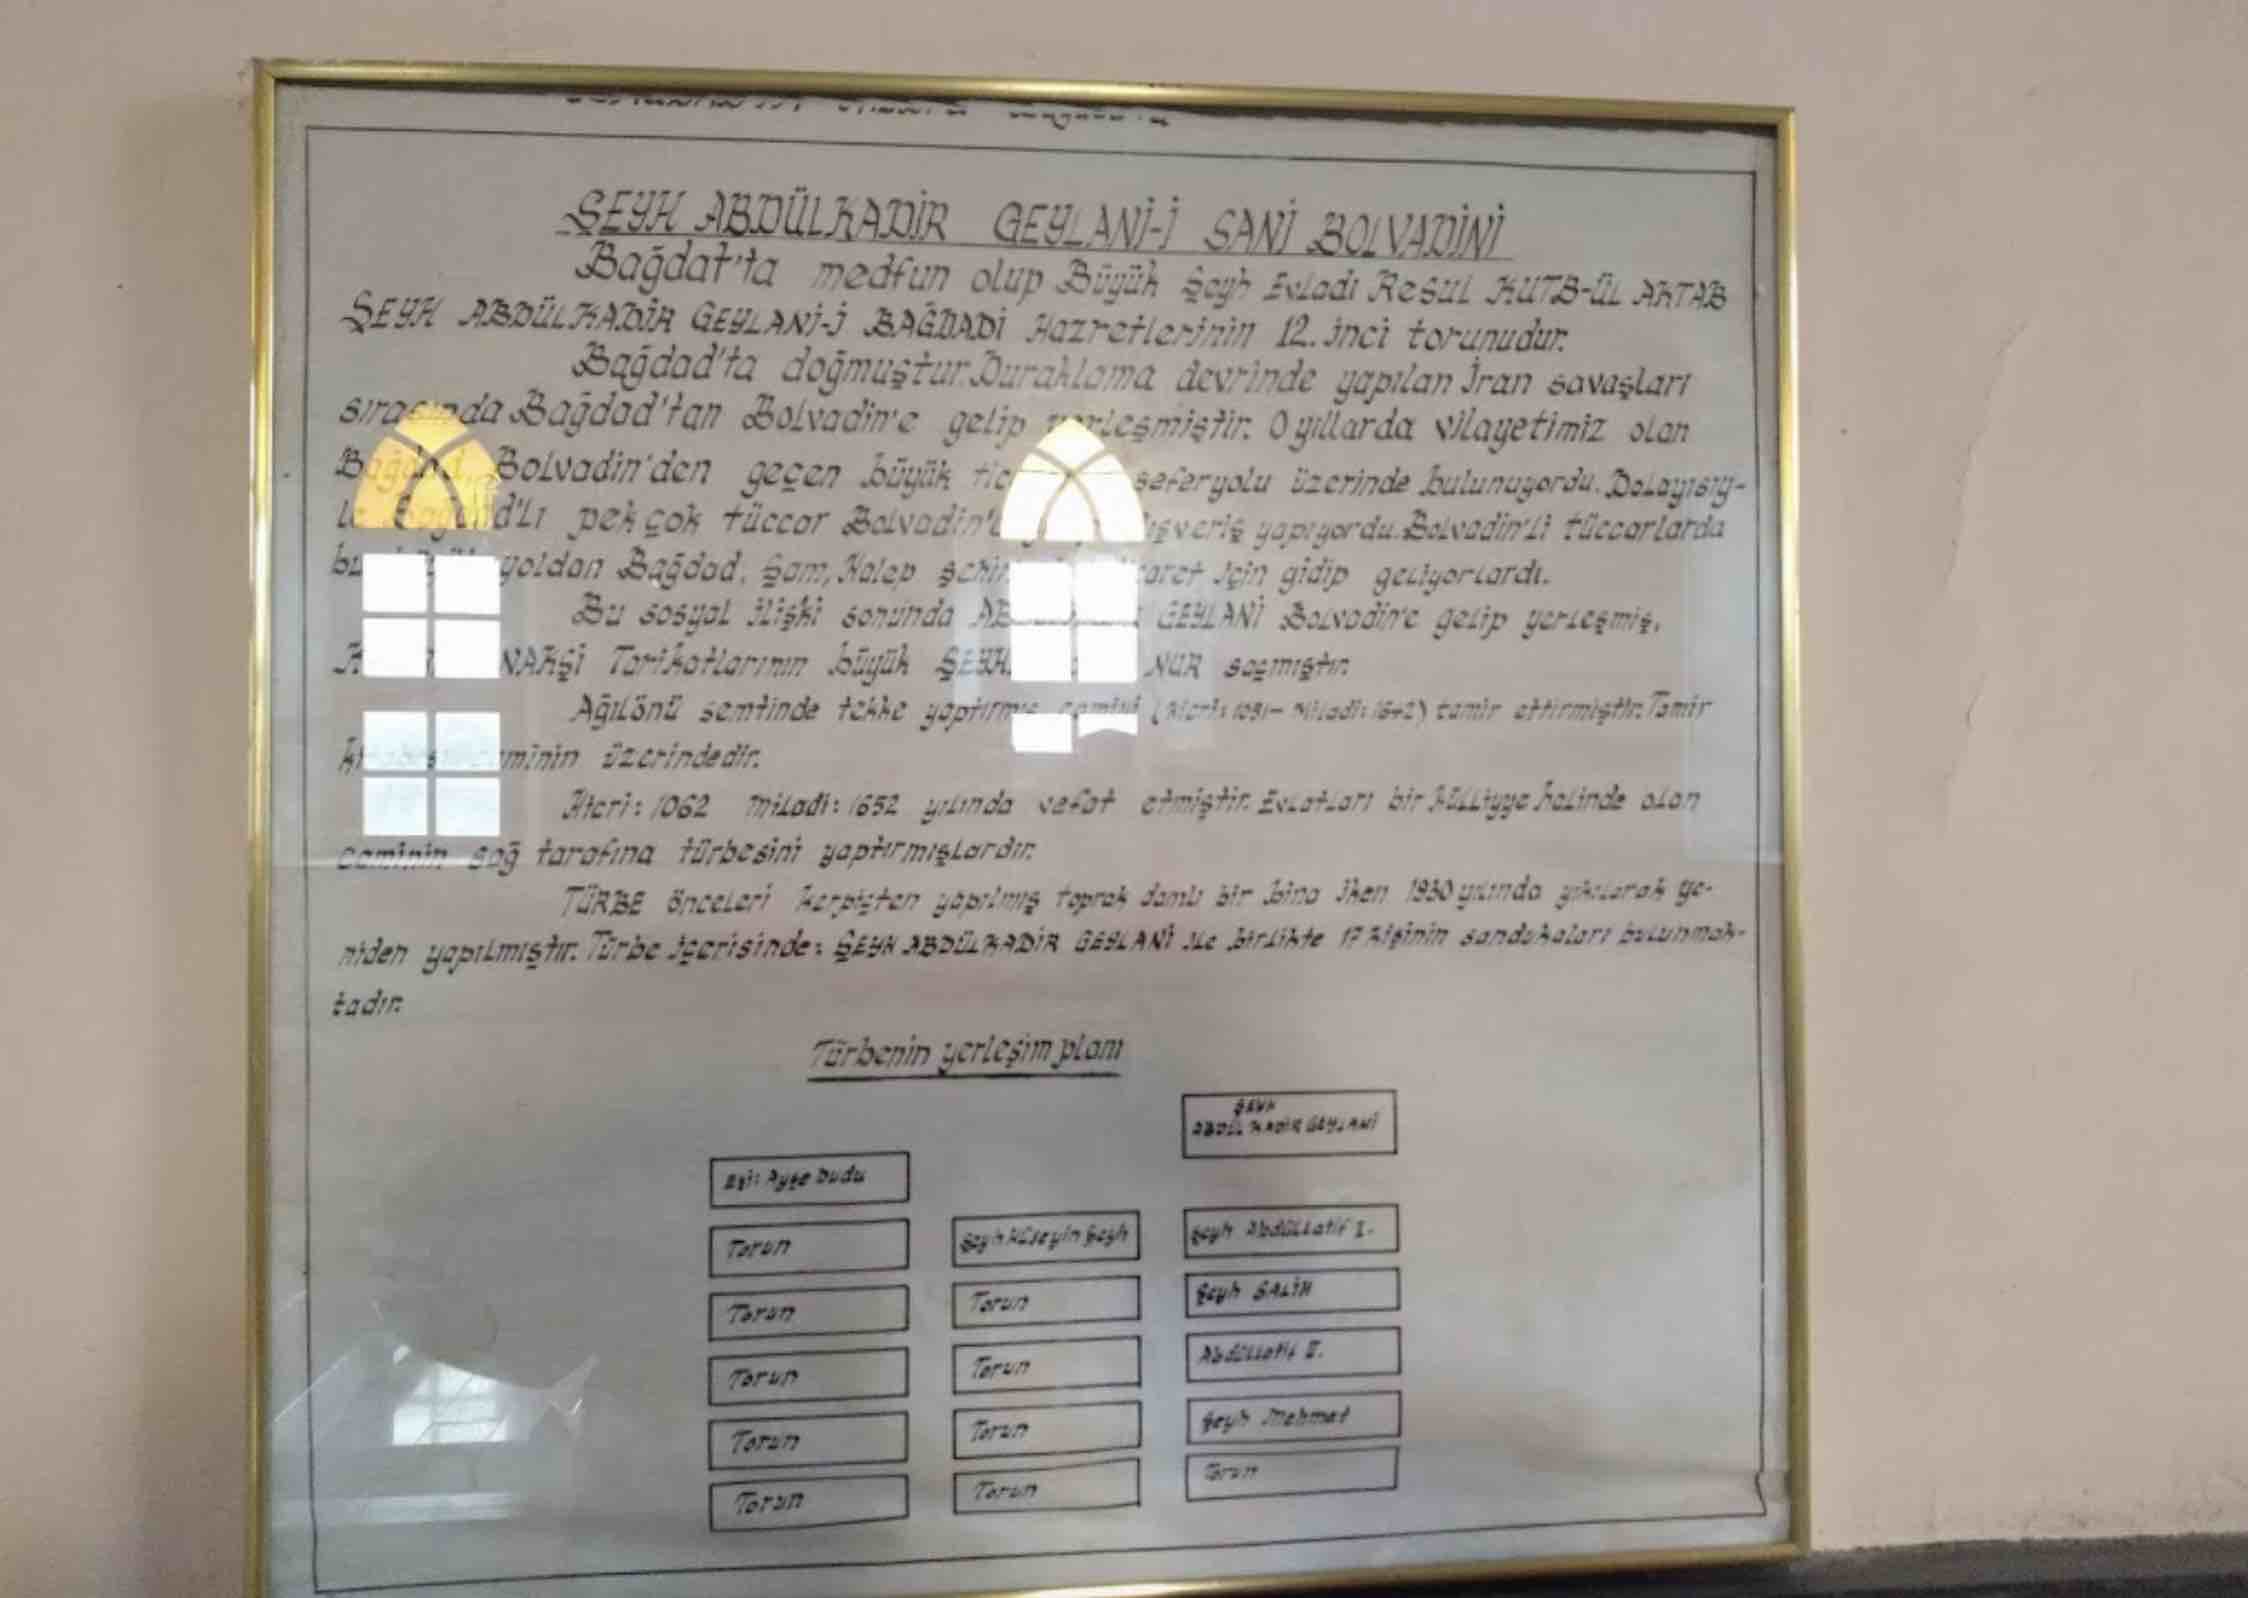 ŞEYH ABDÜLKADİR GEYLANİ-İ SANİ BOLVADİNİ
Bağdat'ta medfun olup Büyük Şeyh Evladı Resul KUTB-ÜL AKTAB
ŞEYH ABDÜLKADİR GEYLANİ-İ BAĞDADİ Hazretlerinin 12.inci torunudur.
Bağdad'ta doğmuştur. Duraklama devrinde yapılan İran savaşları
sırasında Bağdad'tan Bolvadin'e gelip yerleşmiştir. O yıllarda vilayetimiz olan
Bağdad, Bolvadin'den geçen büyük seferyolu üzerinde bulunuyordu. Dolayısıy-
la Bağdad'lı pek çok tüccar alışveriş yapıyordu. Bolvadin'li tüccarlarda
yoldan Bağdad, Şam, Halep için gidip geliyorlardı.
Bu sosyal ilişki sonunda ABDÜLKADİR GEYLANİ Bolvadin'e gelip yerleşmiş,
NAKŞİ Tarikatlarının büyük NUR saçmıştır.
Ağılönü semtinde tekke yaptırmış camiyi (Hicri: 1051- Miladi: 1642) tamir ettirmiştir. Tamir
kitabesi caminin üzerindedir.
Hicri: 1062 Miladi: 1652 yılında vefat etmiştir. Evlatları bir külliyye halinde olan
caminin sağ tarafına türbesini yaptırmışlardır.
TÜRBE önceleri kerpiçten yapılmış toprak damlı bir bina iken 1930 yılında yıkılarak ye-
niden yapılmıştır. Türbe içerisinde: ŞEYH ABDÜLKADİR GEYLANİ ile birlikte 17 kişinin sandukaları bulunmak-
tadır.
Türbenin yerleşim planı
ŞEYH
ABDÜLKADİR GEYLANİ
Eşi: Ayşe budu
Torun
Şeyh Hüseyin Şeyh
Şeyh Abdüllatif I.
Torun
Torun
Şeyh SALİH
Torun
Torun
Abdüllatif II.
Torun
Torun
Şeyh Mehmet
Torun
Torun
Torun